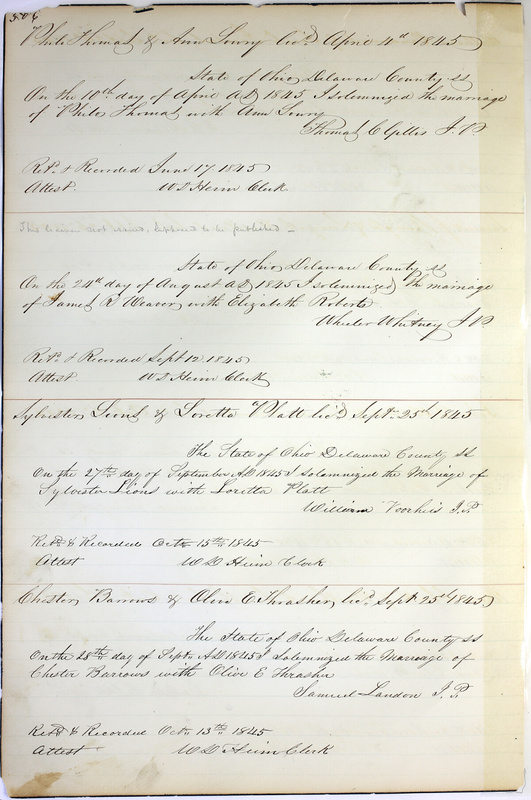 506
Philo Thomas & Ann Lowry lic'd April 4th 1845
State of Ohio Delaware County ss
On the 10th day of April AD 1845 I solemnized the marriage
of Philo Thomas with Ann Lowry
Thomas C Gillis J.P.
Ret'd & Recorded June 17 1845
Attest W D Heim Clerk
This license not issued. Supposed to be published —
State of Ohio Delaware County ss
On the 24th day of August AD 1845 I solemnized the marriage
of James R Weaver with Elizabeth Roberts
Wheeler Whitney J.P.
Ret'd & Recorded Sept 12 1845
Attest W D Heim Clerk
Sylvester Lions & Loretta Platt lic'd Sept. 25th 1845
The State of Ohio Delaware County ss
On the 27th day of September AD 1845 I solemnized the Marriage of
Sylvester Lions with Loretta Platt
William Voorhies J.P.
Ret'd & Recorded Octr. 15th 1845
Attest W D Heim Clerk
Chester Barrows & Olive E Thrasher lic'd Sept 25th 1845
The State of Ohio Delaware County ss
On the 28th day of Sept. AD 1845 I Solemnized the Marriage of
Chester Barrows with Olive E Thrasher
Samuel Landon J.P.
Ret'd & Recorded Octr. 13th 1845
Attest W D Heim Clerk